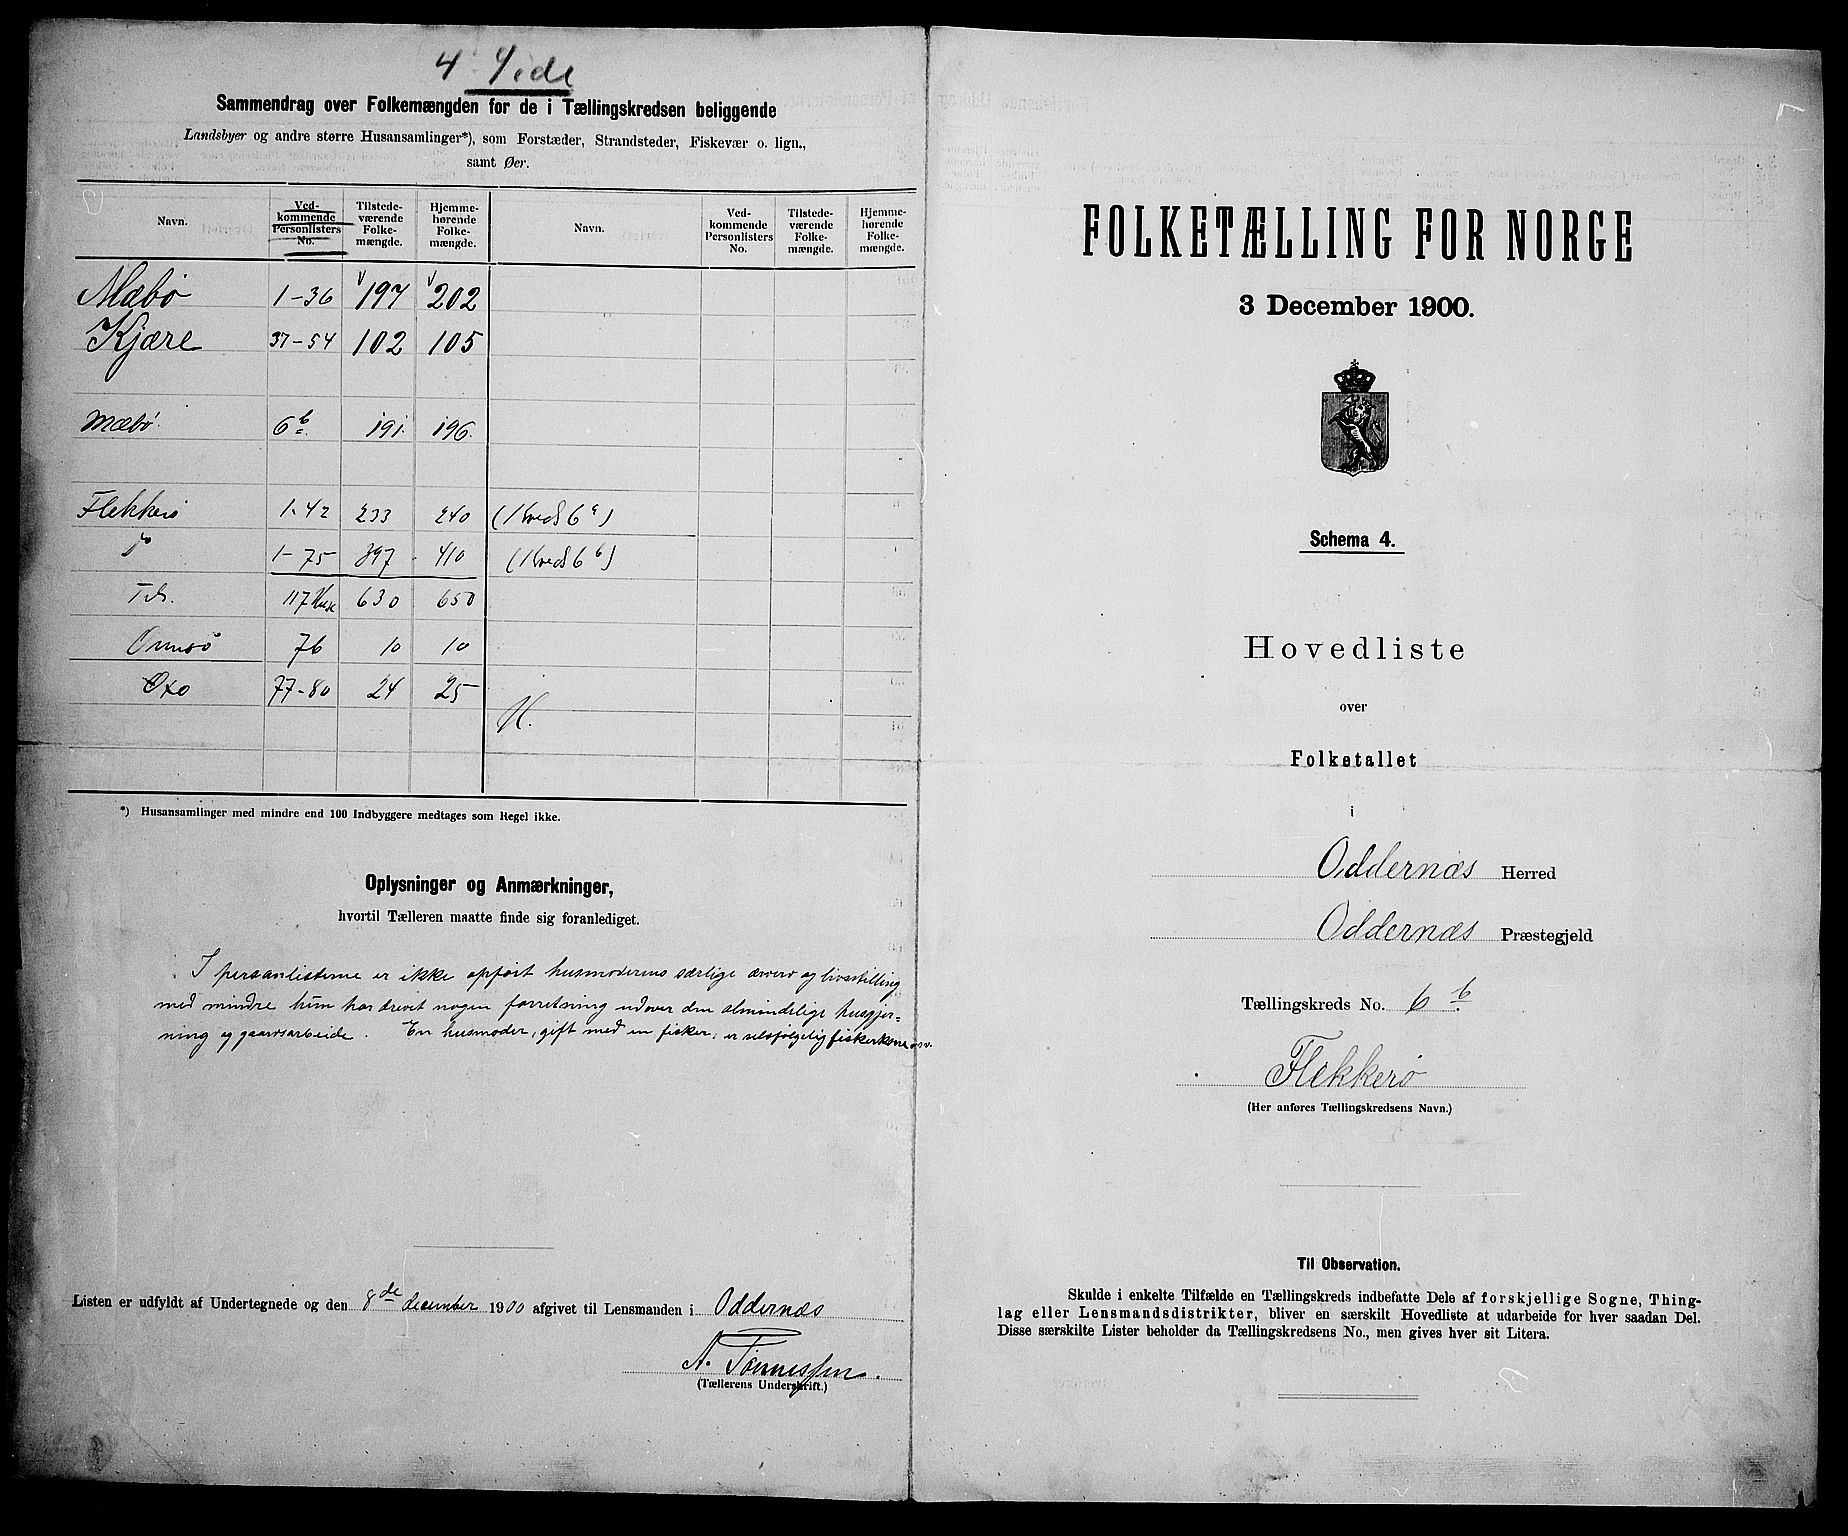 4. Side
Sammendrag over Folkemængden for de i Tællingskredsen beliggende
Landsbyer og andre større Husansamlinger*), som Forstæder, Strandsteder, Fiskevær o. lign.,
samt Øer.
Navn. Ved-kommende Personlisters No. Tilstede-værende Folke-mængde. Hjemme-hørende Folke-mængde. Navn. Ved-kommende Personlisters No. Tilstede-værende Folke-mængde. Hjemme-hørende Folke-mængde.
Mæbø 1-36 197 202
Kjære 37-54 102 105
Mæbø. 6b. 191. 196.
Flekkerø 1-42 233 240 (Kreds 6a)
do 1-75 397 410 (Kreds 6b)
Tils. 117 Huse 630 650
Ømsø 76 10 10
Oxø 77-80 24 25
*) Husansamlinger med mindre end 100 Indbyggere medtages som Regel ikke.
Oplysninger og Anmærkninger,
hvortil Tælleren maatte finde sig foranlediget.
I personlisterne er ikke opført husmoderens særlige erverv og livsstilling
med mindre hun har drevet nogen forretning udover den almindelige husgjer-
ning og gaardsarbeide. En husmoder, gift med en fisker, er selvfølgelig fiskerkone osv.
Listen er udfyldt af Undertegnede og den 8de december 1900 afgivet til Lensmanden i Oddernæs
A. Tønnessen.
(Tællerens Underskrift.)
FOLKETÆLLING FOR NORGE
3 December 1900.
Schema 4.
Hovedliste
over
Folketallet
i
Oddernæs Herred
Oddernæs Præstegjeld
Tællingskreds No. 6b.
Flekkerø
(Her anføres Tællingskredsens Navn.)
Til Observation.
Skulde i enkelte Tilfælde en Tællingskreds indbefatte Dele af forskjellige Sogne, Thing-
lag eller Lensmandsdistrikter, bliver en særskilt Hovedliste at udarbeide for hver saadan Del.
Disse særskilte Lister beholder da Tællingskredsens No., men gives hver sit Litera.